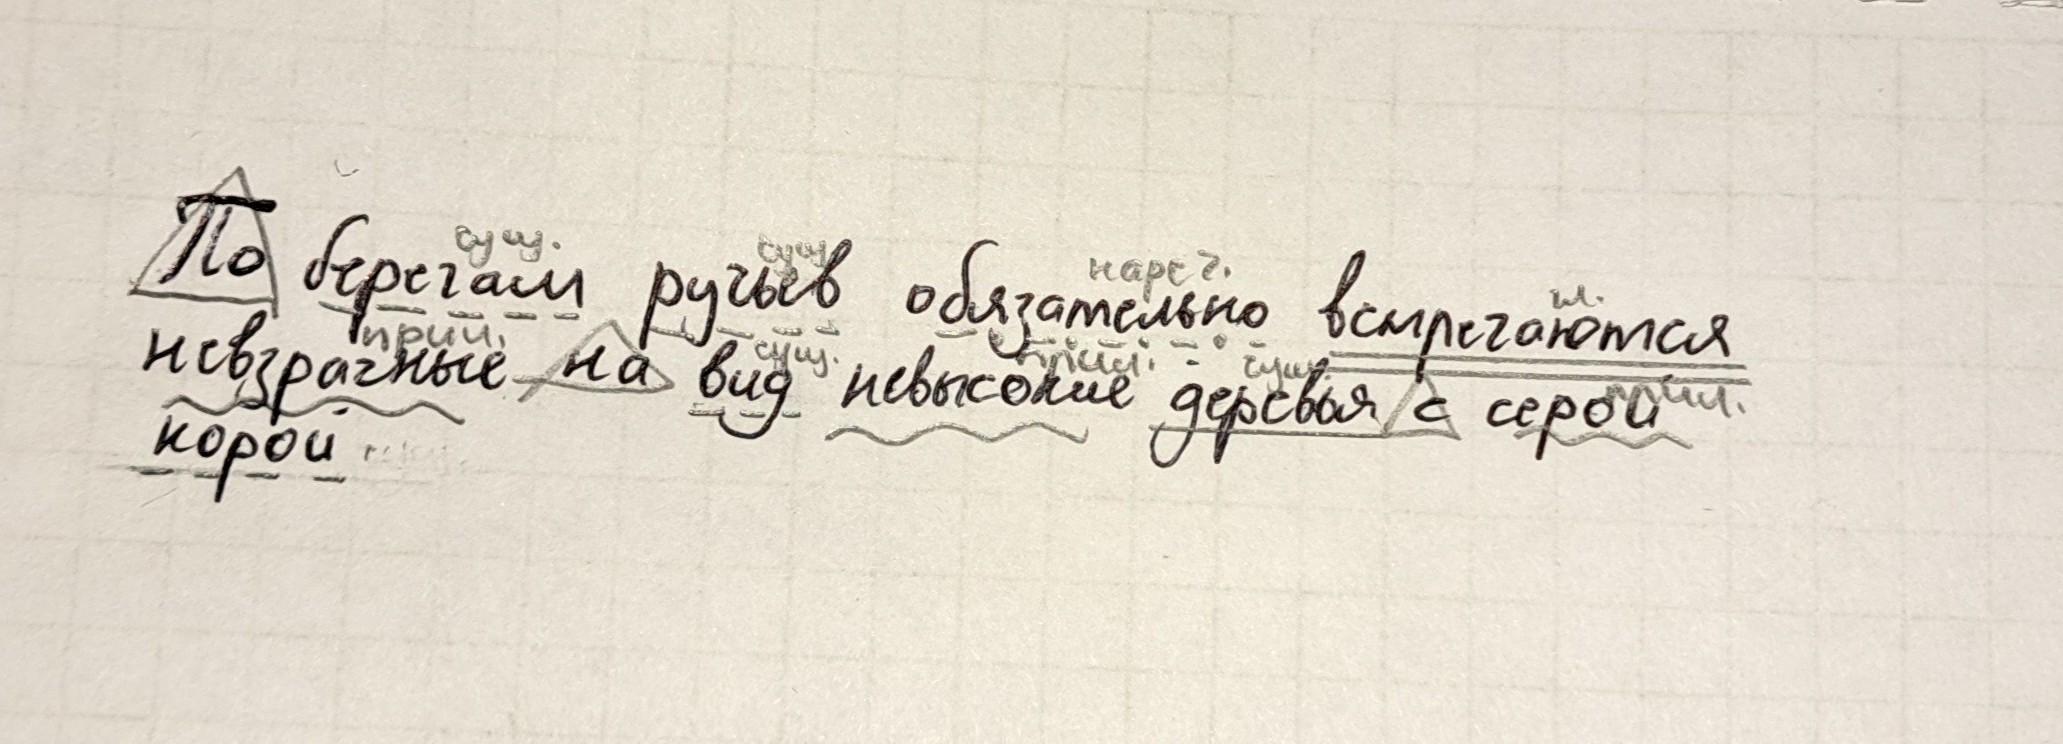 сущ. сущ. нареч. гл.
По берегам ручьев обязательно встречаются
прил. сущ. прил. сущ. прил.
невзрачные на вид невысокие деревья с серой
корой сущ.